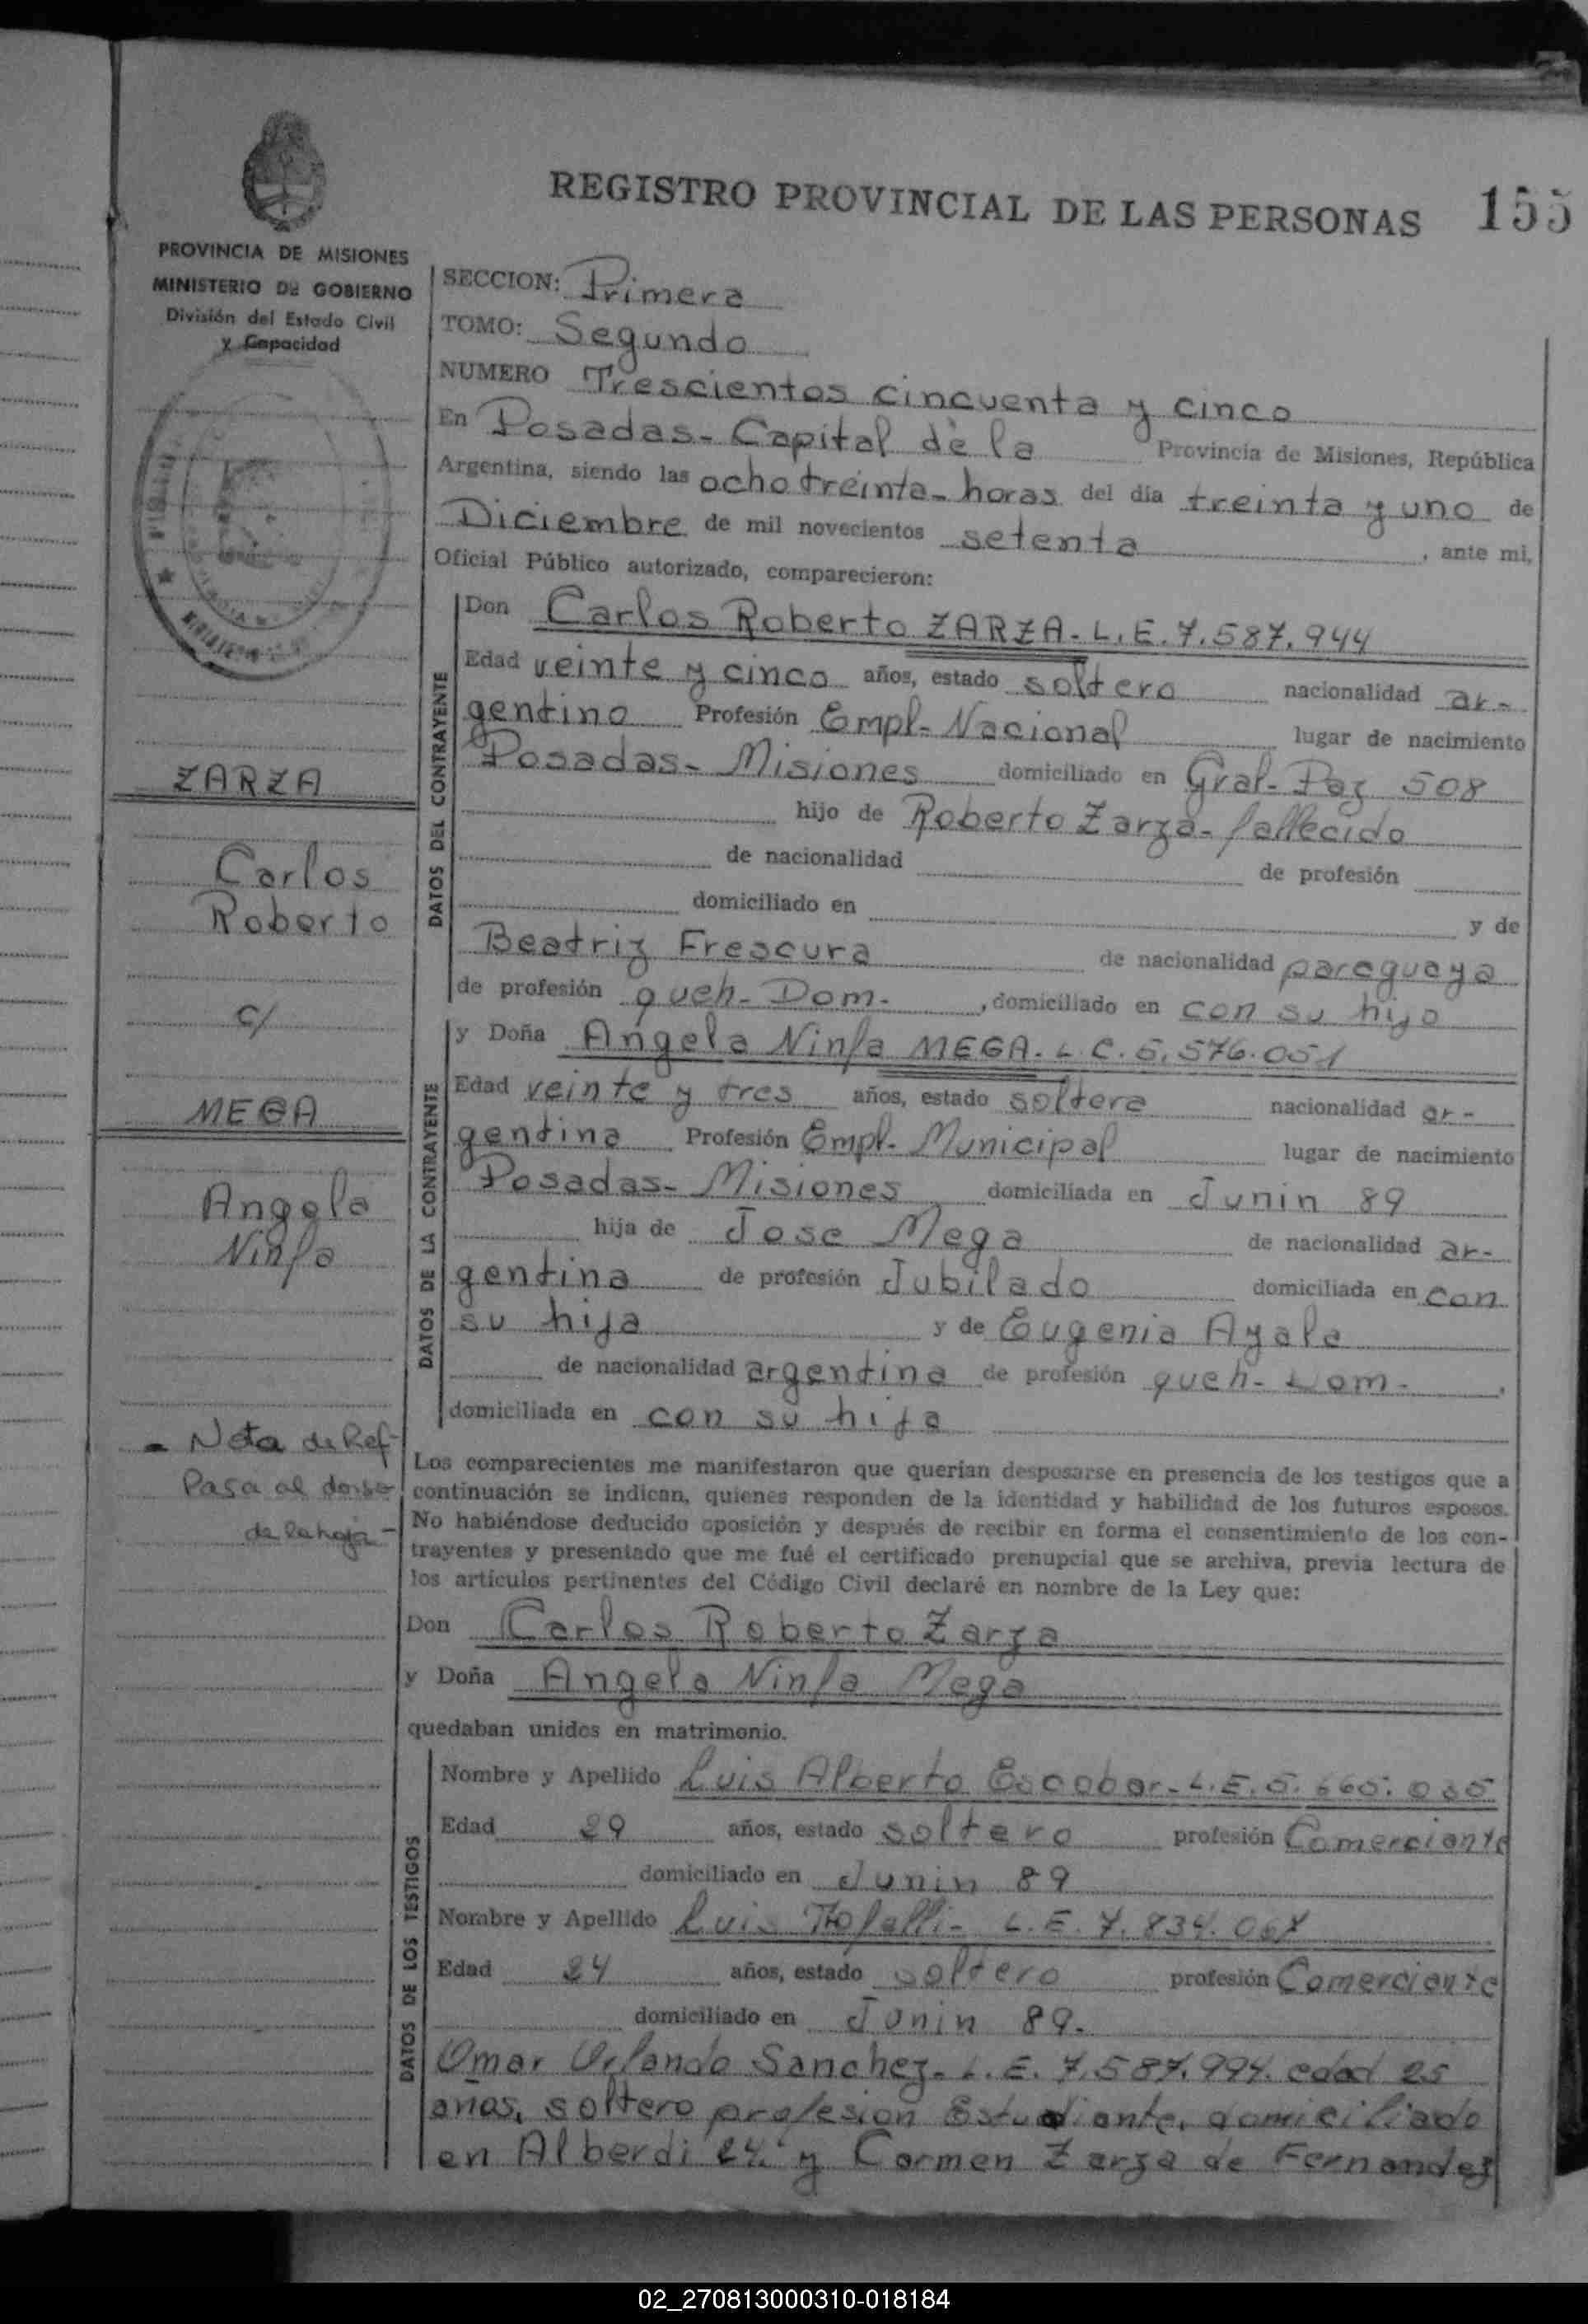 REGISTRO PROVINCIAL DE LAS PERSONAS 155
PROVINCIA DE MISIONES
MINISTERIO DE GOBIERNO
División del Estado Civil
y Capacidad
SECCION: Primera
TOMO: Segundo
NUMERO Trescientos cincuenta y cinco
En Posadas - Capital de la Provincia de Misiones, República
Argentina, siendo las ocho treinta - horas del día treinta y uno de
Diciembre de mil novecientos setenta, ante mi,
Oficial Público autorizado, comparecieron:
DATOS DEL CONTRAYENTE
Don Carlos Roberto ZARZA - L.E. 7.587.944
Edad veinte y cinco años, estado soltero nacionalidad ar-
gentino Profesión Empl- Nacional lugar de nacimiento
Posadas - Misiones domiciliado en Gral- Paz 508
hijo de Roberto Zarza - fallecido
de nacionalidad de profesión
domiciliado en y de
Beatriz Frescura de nacionalidad paraguaya
de profesión queh- Dom-, domiciliado en con su hijo
DATOS DE LA CONTRAYENTE
y Doña Angela Ninfa MEGA - L.C. 5.576.051
Edad veinte y tres años, estado soltera nacionalidad ar-
gentina Profesión Empl- Municipal lugar de nacimiento
Posadas - Misiones domiciliada en Junin 89
hija de Jose Mega de nacionalidad ar-
gentina de profesión Jubilado domiciliada en con
su hija y de Eugenia Ayala
de nacionalidad argentina de profesión queh- Dom-,
domiciliada en con su hija
ZARZA
Carlos
Roberto
c/
MEGA
Angela
Ninfa
- Nota de Ref-
Pasa al dorso
de la hoja -
Los comparecientes me manifestaron que querían desposarse en presencia de los testigos que a
continuación se indican, quienes responden de la identidad y habilidad de los futuros esposos.
No habiéndose deducido oposición y después de recibir en forma el consentimiento de los con-
trayentes y presentado que me fué el certificado prenupcial que se archiva, previa lectura de
los artículos pertinentes del Código Civil declaré en nombre de la Ley que:
Don Carlos Roberto Zarza
y Doña Angela Ninfa Mega
quedaban unidos en matrimonio.
DATOS DE LOS TESTIGOS
Nombre y Apellido Luis Alberto Escobar - L.E. 5.
Edad 29 años, estado soltero profesión Comerciante
domiciliado en Junin 89
Nombre y Apellido Luis - L.E. 7.834.067
Edad 24 años, estado soltero profesión Comerciante
domiciliado en Junin 89.
Omar Orlando Sanchez - L.E. 7.587.994. edad 25
años, soltero profesion Estudiante, domiciliado
en Alberdi 24. y Carmen Zarza de Fernandez
02_270813000310-018184